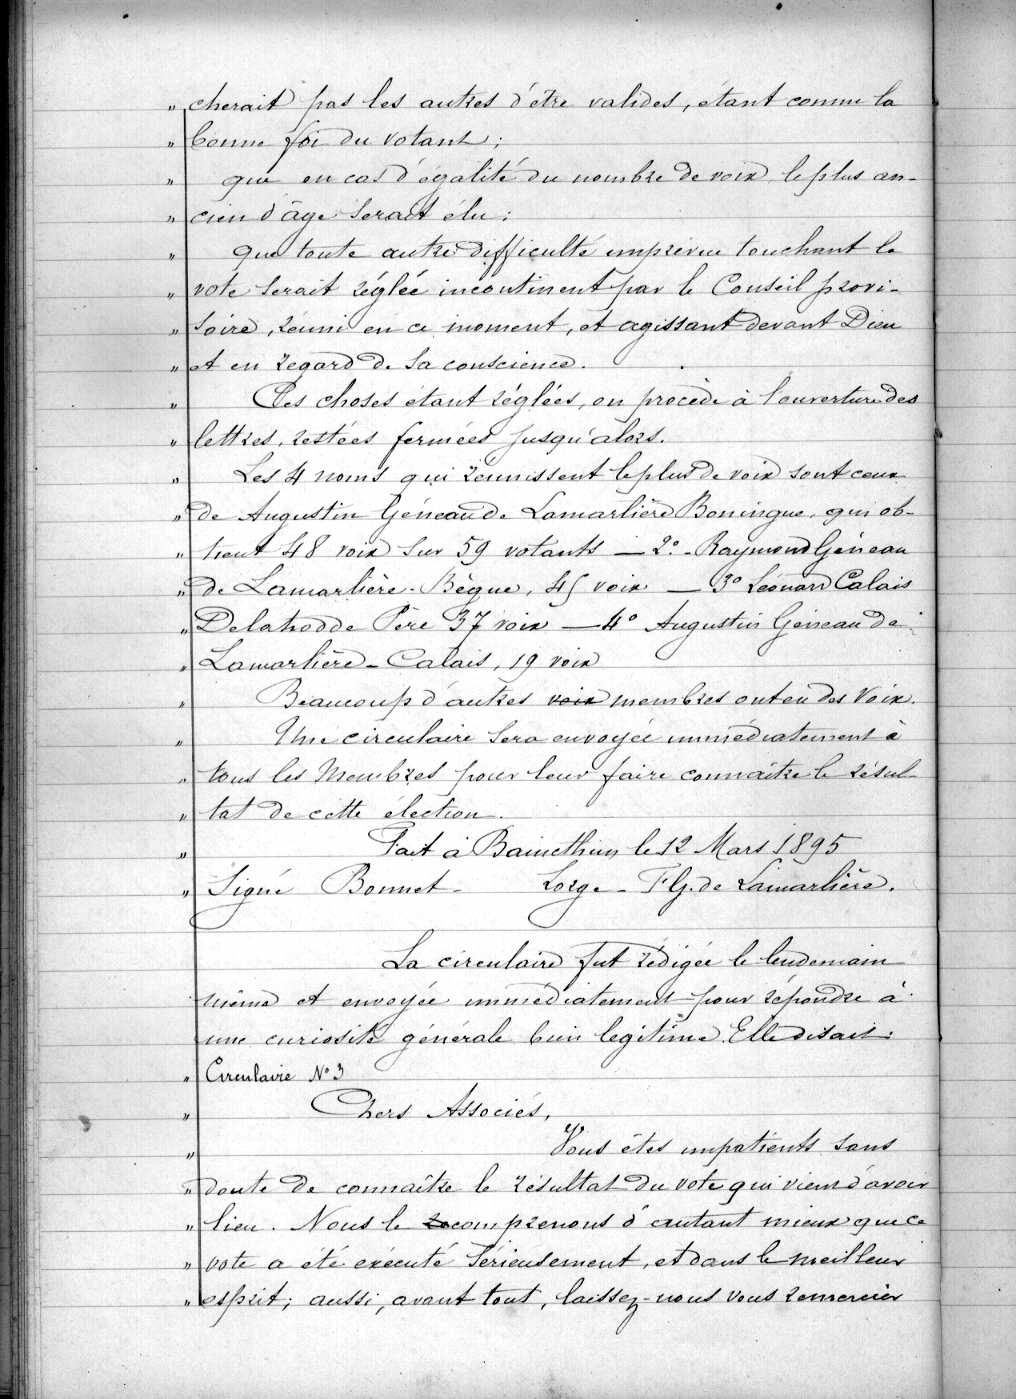 " cherait pas les autres d'être valides, étant connue la
" bonne foi du votant ;
" que en cas d'égalité du nombre de voix le plus an-
" cien d'âge serait élu ;
" que toute autre difficulté imprévue touchant le
" vote serait réglée incontinent par le Conseil provi-
" soire, réuni en ce moment, et agissant devant Dieu
" et en regard de sa conscience.
" Ces choses étant réglées, on procède à l'ouverture des
" lettres, restées fermées jusqu'alors.
" Les 4 noms qui réunissent le plus de voix sont ceux
" de Augustin Géneau de Lamarlière Boningue, qui ob-
" tient 48 voix sur 59 votants — 2° - Raymond Géneau
" de Lamarlière - Bègue, 45 voix — 3° Léonard Calais
" Delahodde Père 37 voix — 4° Augustin Géneau de
" Lamarlière - Calais, 19 voix
" Beaucoup d'autres voix membres ont eu des voix.
" Une circulaire sera envoyée immédiatement à
" tous les Membres pour leur faire connaître le résul-
" tat de cette élection.
" Fait à Baincthun le 12 Mars 1895
" Signé Bonnet - Lorge - F G. de Lamarlière.
La circulaire fut rédigée le lendemain
même et envoyée immédiatement pour répondre à
une curiosité générale bien légitime. Elle disait :
" Circulaire N° 3
" Chers Associés,
" Vous êtes impatients sans
" doute de connaître le résultat du vote qui vient d'avoir
" lieu. Nous le comprenons d'autant mieux que ce
" vote a été exécuté sérieusement, et dans le meilleur
" esprit ; aussi, avant tout, laissez-nous vous remercier